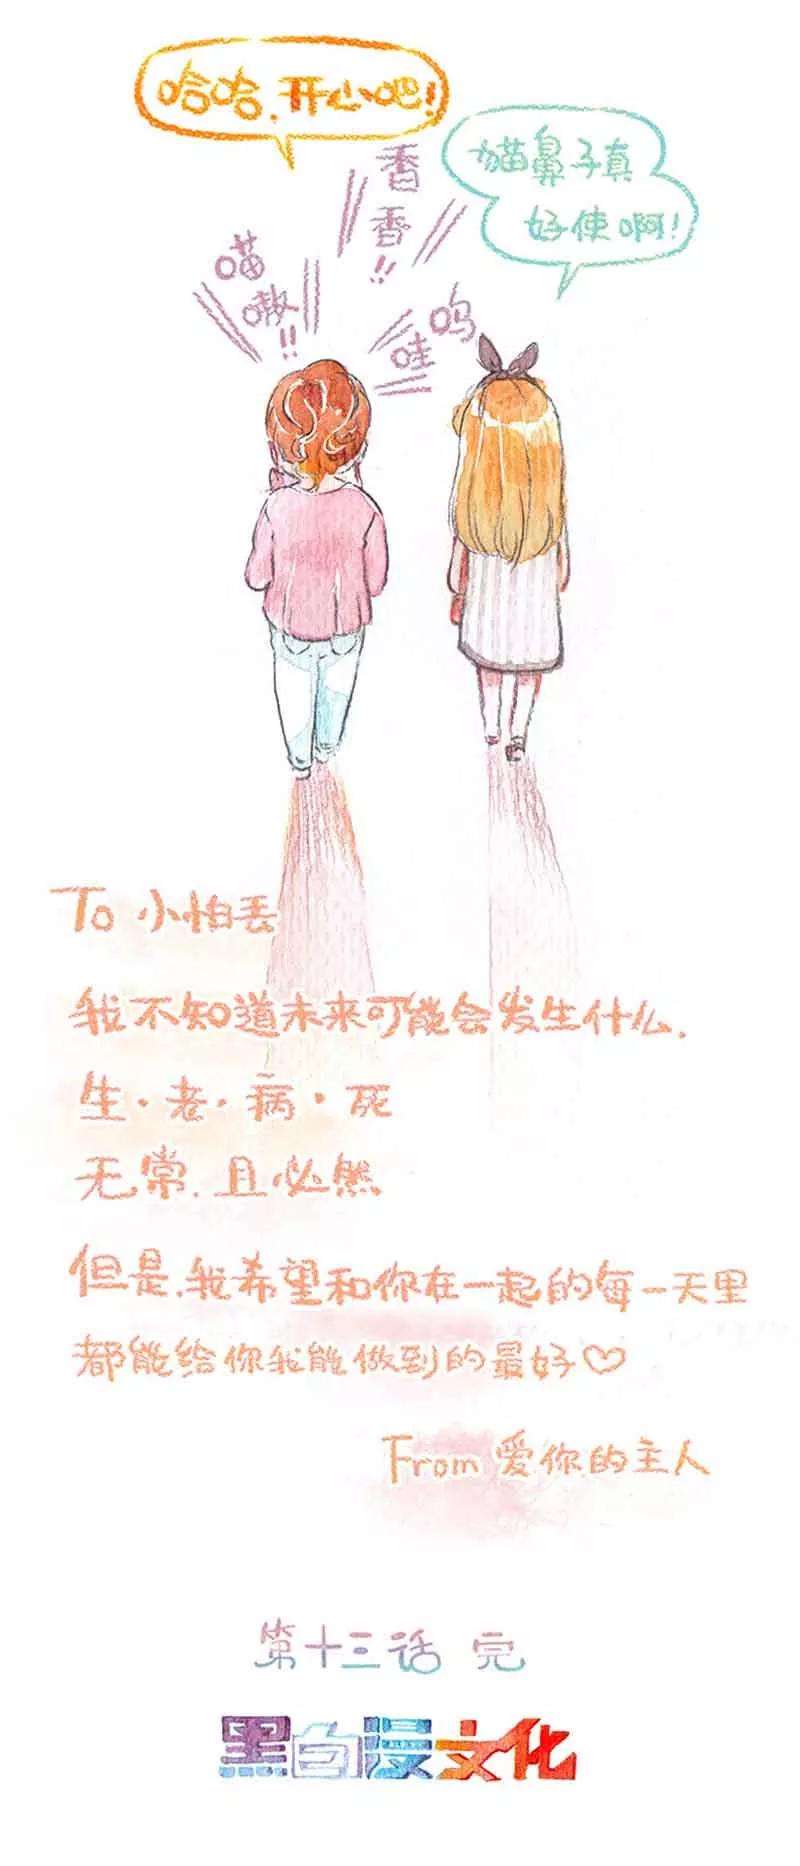 哈哈,开心吧!
猫鼻子真
好使啊!
香
香
!!
喵
嗷
!!
呜
哇
To 小怕丢
我不知道未来可能会发生什么.
生·老·病·死
无常.且必然
但是.我希望和你在一起的每一天里
都能给你我能做到的最好♡
From 爱你的主人
第十三话 完
黑白漫文化